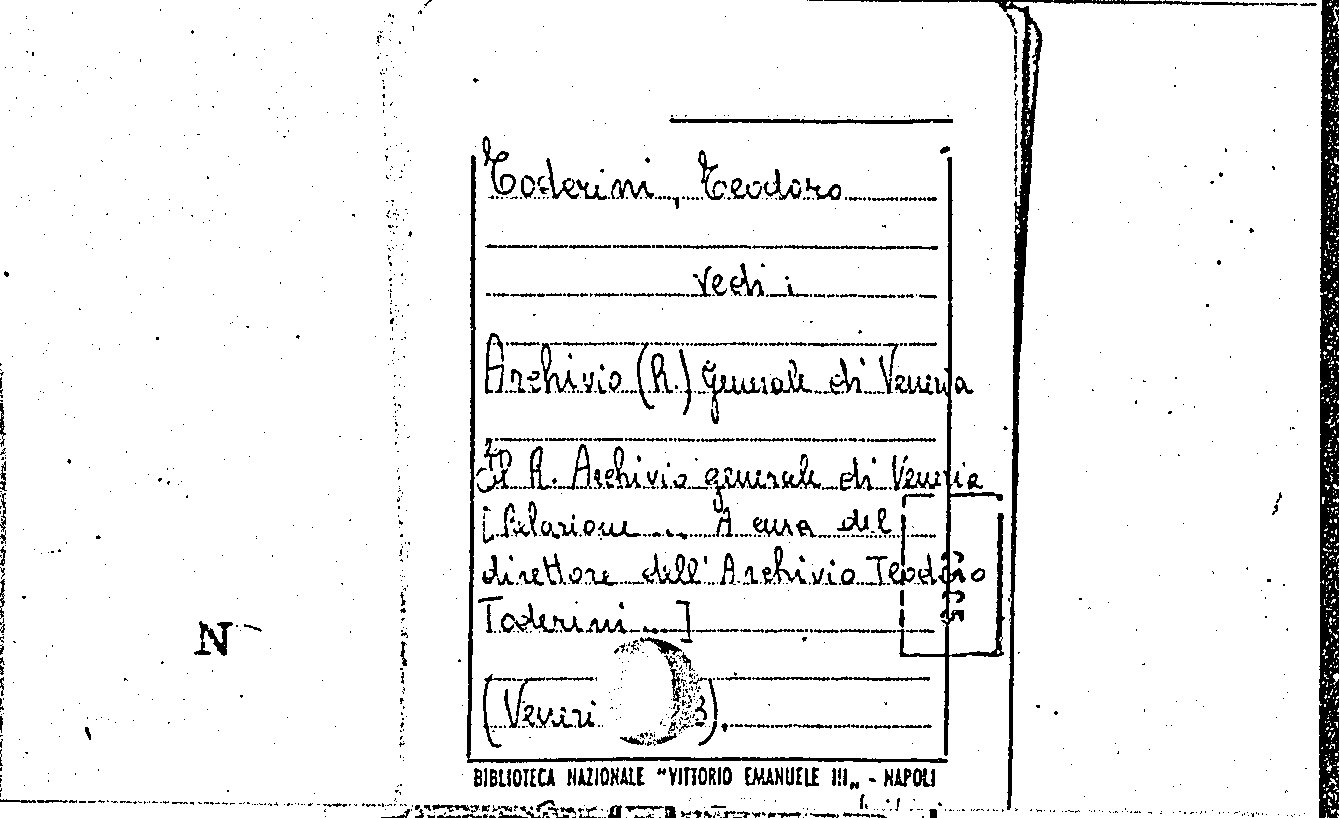 Toderini, Teodoro
vedi:
Archivio (R.) Generale di Venezia
Il R. Archivio generale di Venezia
[Relazione ... A cura del
direttore dell' Archivio Teodoro
Toderini ...]
(Venezi
3).
N
BIBLIOTECA NAZIONALE "VITTORIO EMANUELE III„ - NAPOLI